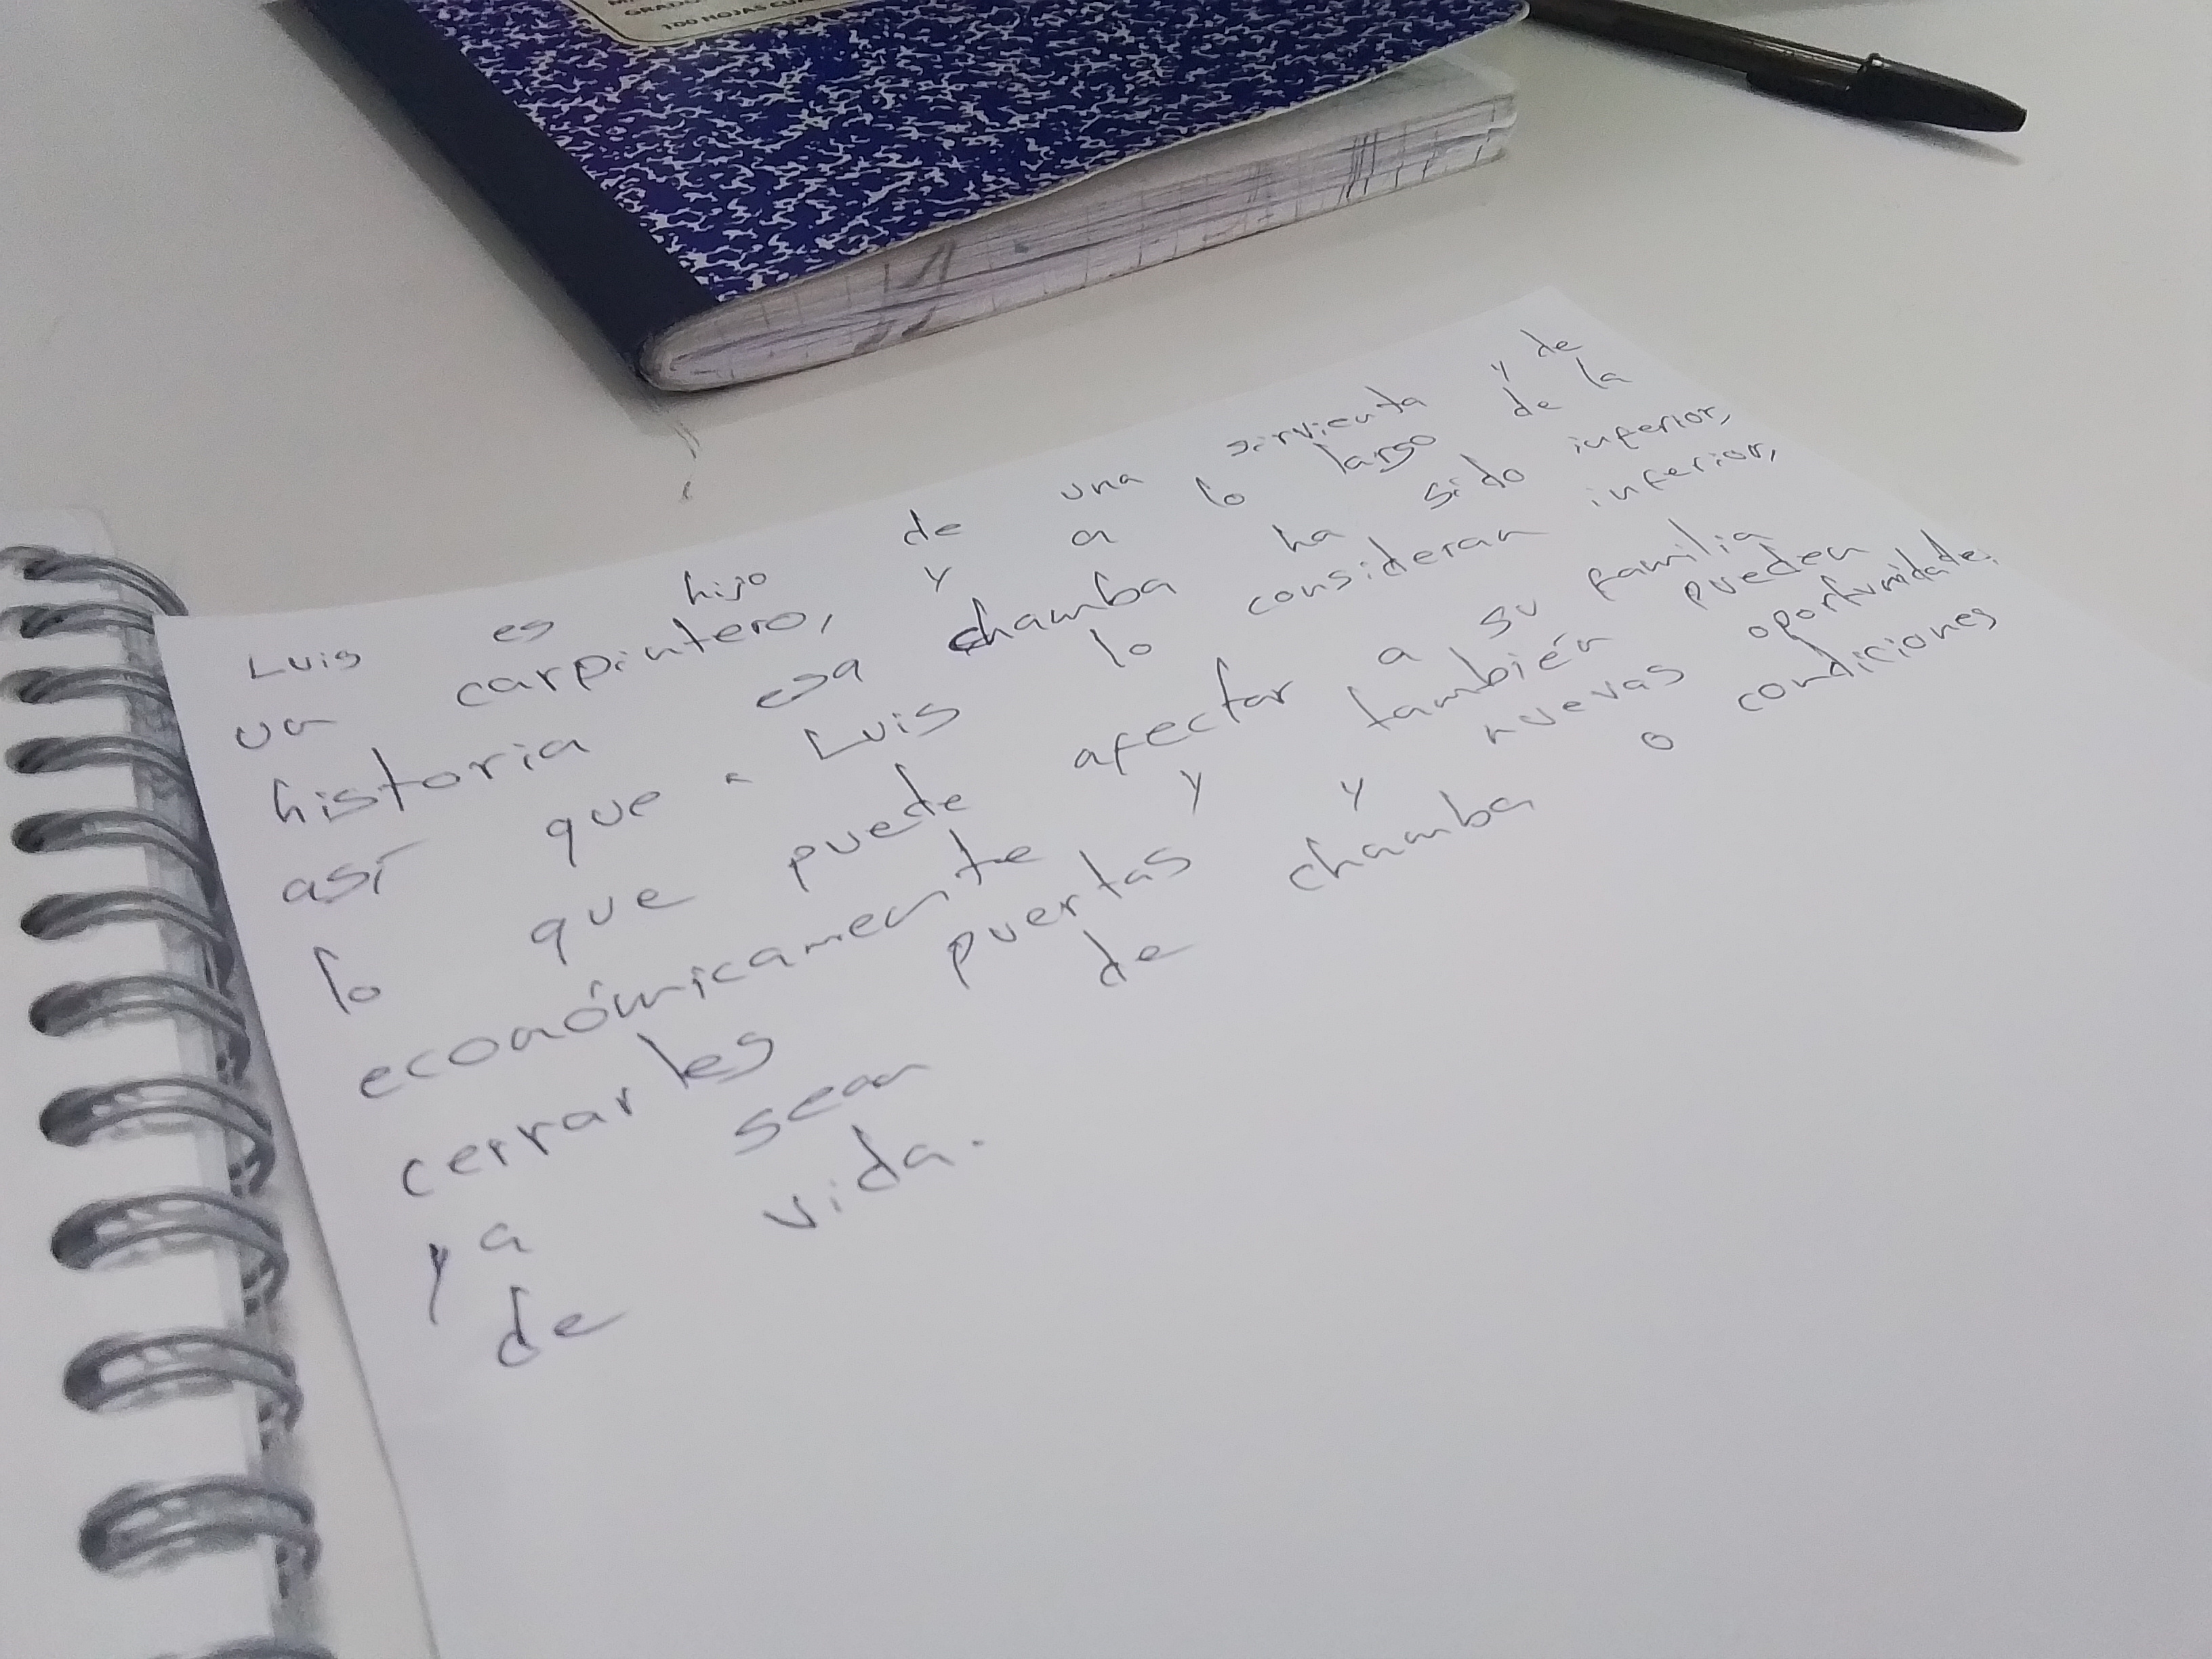 GRADO
100 HOJAS
Luis es hijo de una sirvienta y de
un carpintero, y a lo largo de la
historia esa chamba ha sido inferior,
así que a Luis lo consideran inferior,
lo que puede afectar a su familia
económicamente y también pueden
cerrarles puertas y nuevas oportunidades
ya sean de chamba o condiciones
de vida.